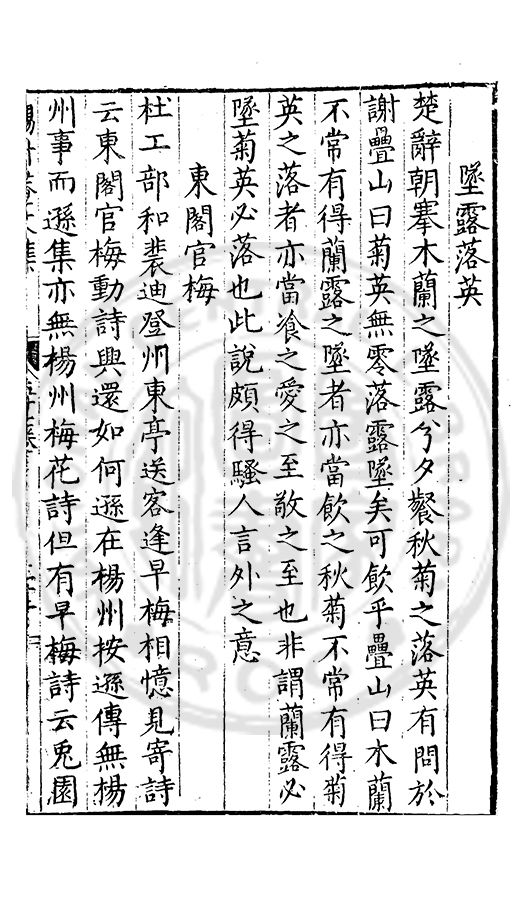 墜露落英
楚辭朝搴木蘭之墜露兮夕餐秋菊之落英有問於
謝疊山曰菊英無零落露墜矣可飲乎疊山曰木蘭
不常有得蘭露之墜者亦當飲之秋菊不常有得菊
英之落者亦當飡之愛之至敬之至也非謂蘭露必
墜菊英必落也此說頗得騷人言外之意
東閣官梅
杜工部和裴迪登州東亭送客逢早梅相憶見寄詩
云東閣官梅動詩興還如何遜在楊州按遜傳無楊
州事而遜集亦無楊州梅花詩但有早梅詩云兎園